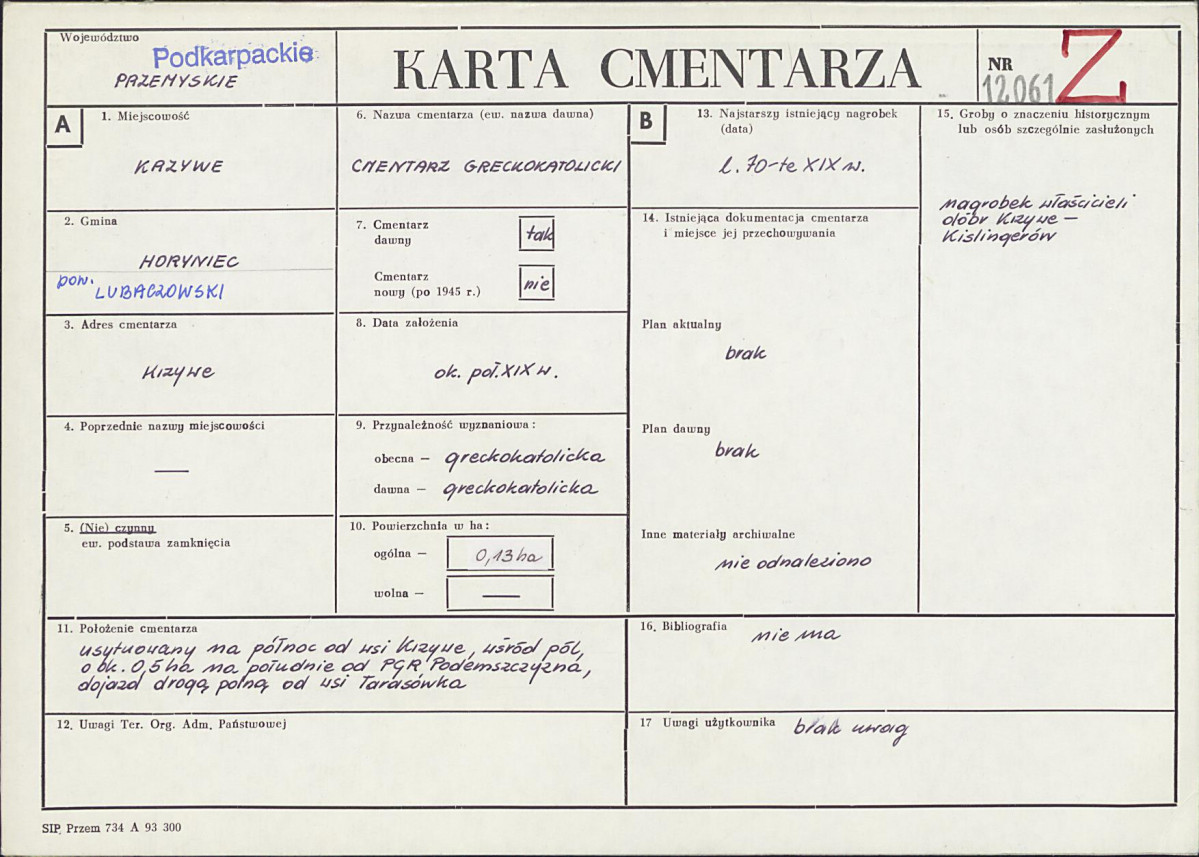 Województwo
Podkarpackie
PRZEMYSKIE
KARTA CMENTARZA
NR
12061
Z
A
1. Miejscowość
KRZYWE
2. Gmina
HORYNIEC
pow.
LUBACZOWSKI
3. Adres cmentarza
Krzywe
4. Poprzednie nazwy miejscowości
—
5. (Nie) czynny
ew. podstawa zamknięcia
6. Nazwa cmentarza (ew. nazwa dawna)
CMENTARZ GRECKOKATOLICKI
7. Cmentarz
dawny
tak
Cmentarz
nowy (po 1945 r.)
nie
8. Data założenia
ok. poł. XIX w.
9. Przynależność wyznaniowa:
obecna — greckokatolicka
dawna — greckokatolicka
10. Powierzchnia w ha:
ogólna — 0,13 ha
wolna — —
B
13. Najstarszy istniejący nagrobek
(data)
l. 70-te XIX w.
14. Istniejąca dokumentacja cmentarza
i miejsce jej przechowywania
Plan aktualny
brak
Plan dawny
brak
Inne materiały archiwalne
nie odnaleziono
15. Groby o znaczeniu historycznym
lub osób szczególnie zasłużonych
nagrobek właścicieli
dóbr Krzywe —
Kislingerów
11. Położenie cmentarza
usytuowany na północ od wsi Krzywe, wśród pól,
o ok. 0,5 ha na południe od PGR Podemszczyzna,
dojazd drogą polną od wsi Tarasówka
12. Uwagi Ter. Org. Adm. Państwowej
16. Bibliografia
nie ma
17 Uwagi użytkownika
brak uwag
SIP. Przem 734 A 93 300